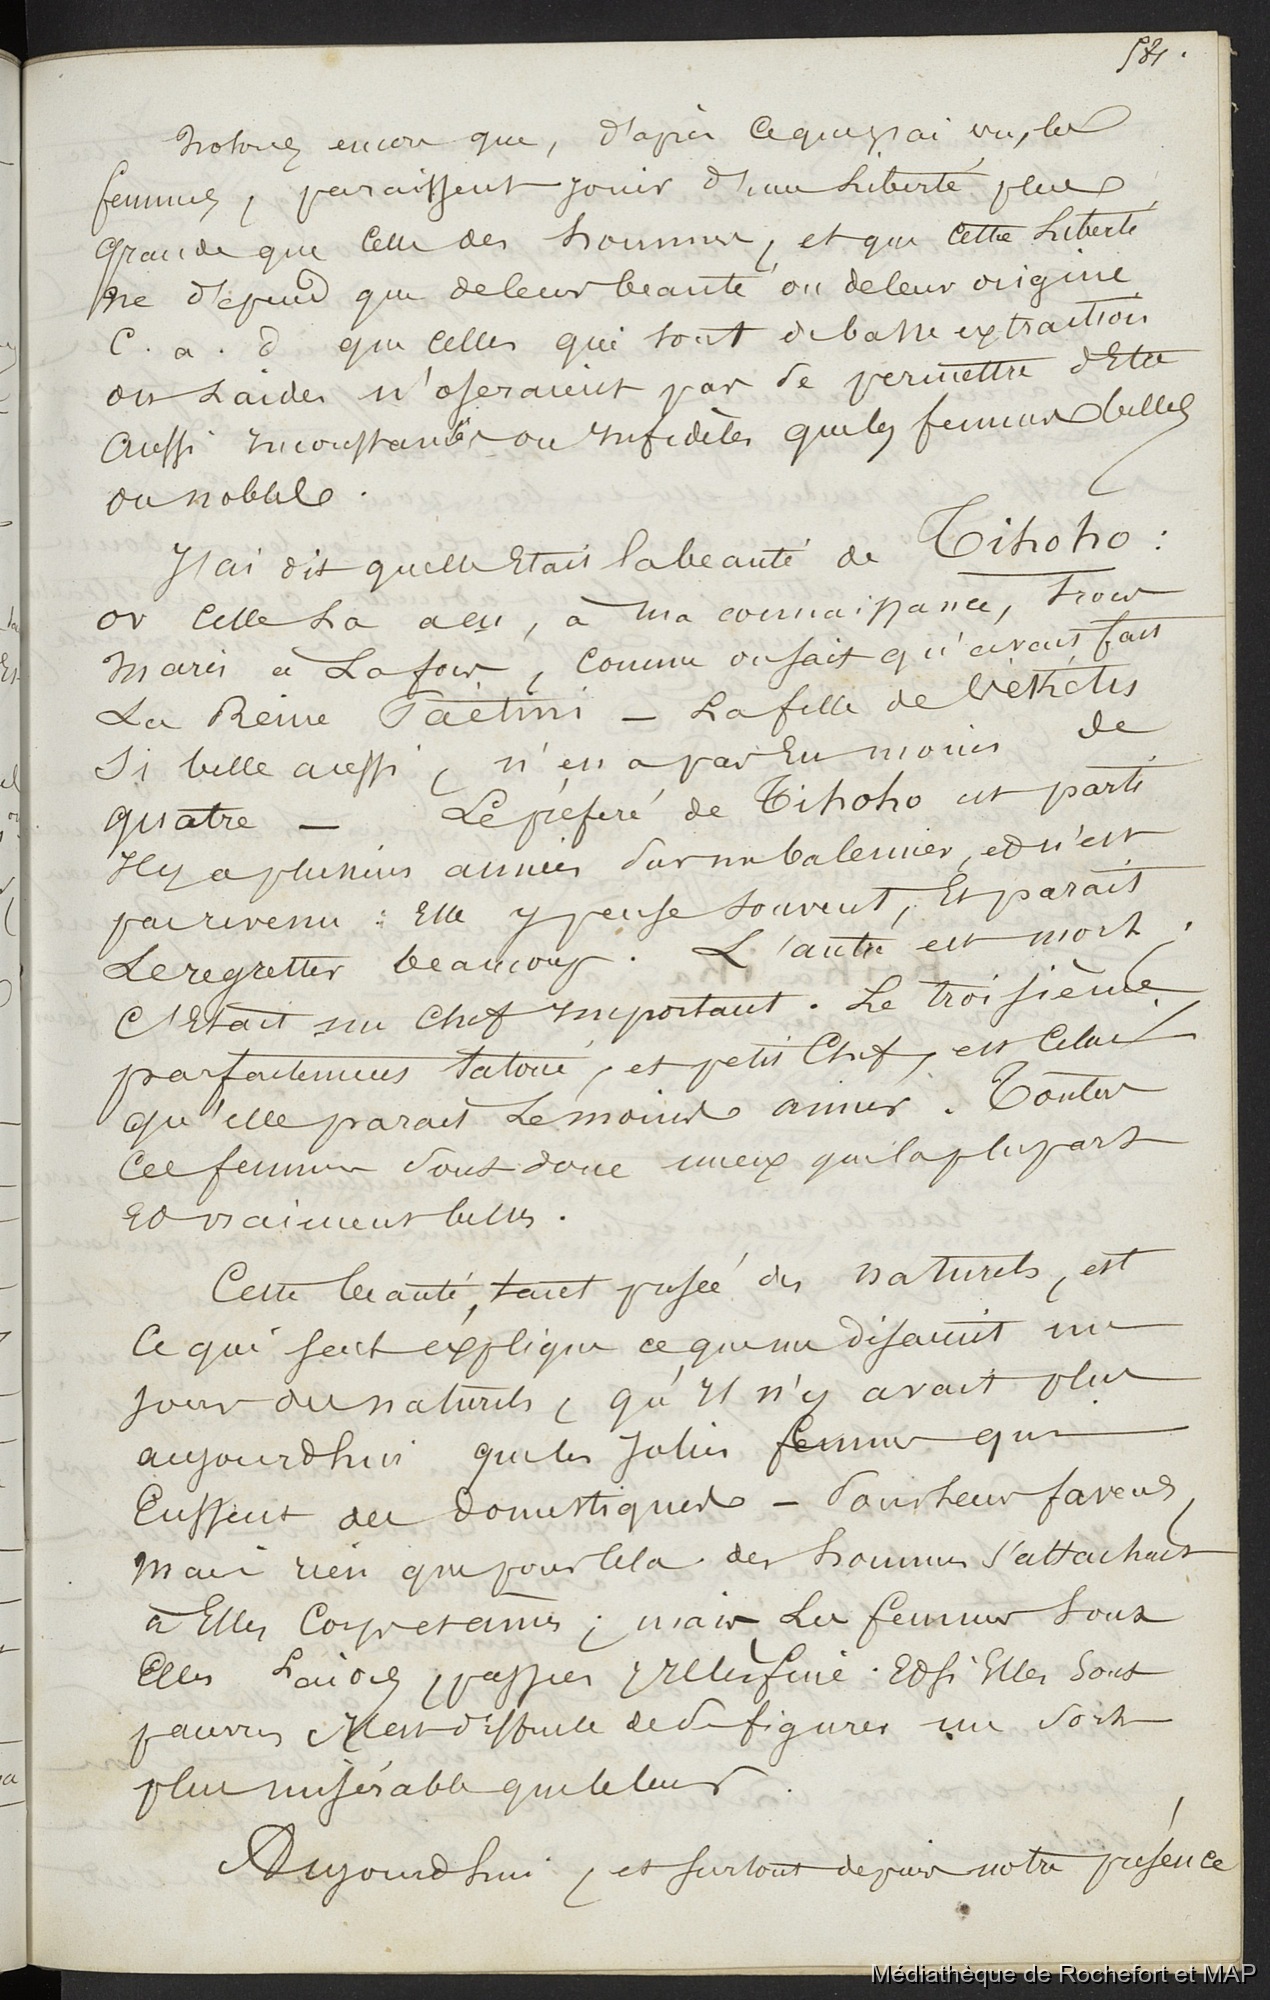 581.
Notons encore que, d'après ce que j'ai vu, les
femmes, paraissent jouir d'une Liberté plus
grande que celle des hommes, et que cette Liberté
ne dépend que de leur beauté ou de leur origine
C. a. d que celles qui sont de basse extraction
ou Laides n'oseraient pas se permettre d'Etre
aussi inconstantes ou infidèles que les femmes belles
ou nobles.
J'ai dit quelle Etait la beauté de Tihoho :
or Celle La a eu, à ma connaissance, trois
maris à La fois, Comme on sait qu'avait fait
La Reine Taètini – La fille de
si belle aussi, n'en a pas Eu moins de
quatre – Le préféré de Tihoho est parti
il y a plusieurs années sur un baleinier, et n'est
pas revenu : Elle y pense souvent, Et parait
Le regretter beaucoup. L'autre est mort ;
C'Etait un Chef important. Le troisième
parfaitement tatoué, et petit Chef, est Celui
qu'elle parait Le moins aimer. Toutes
Ces femmes sont donc mieux que la plupart
Et vraiment belles.
Cette beauté, tant prisée des naturels, est
Ce qui seul explique ce que me disaient un
jour des naturels, qu'il n'y avait plus
aujourd'hui que les jolies femmes qui
Eussent des domestiques – pour Leur faveurs,
mais rien que pour cela des hommes s'attachent
à Elles Corps et ames ; mais Les femmes sont
Elles Laides, passées, fini. Et si Elles sont
pauvres il est difficile de se figurer un sort
plus misérable que le leur.
Aujourd'hui, et surtout depuis notre présence
Médiathèque de Rochefort et MAP